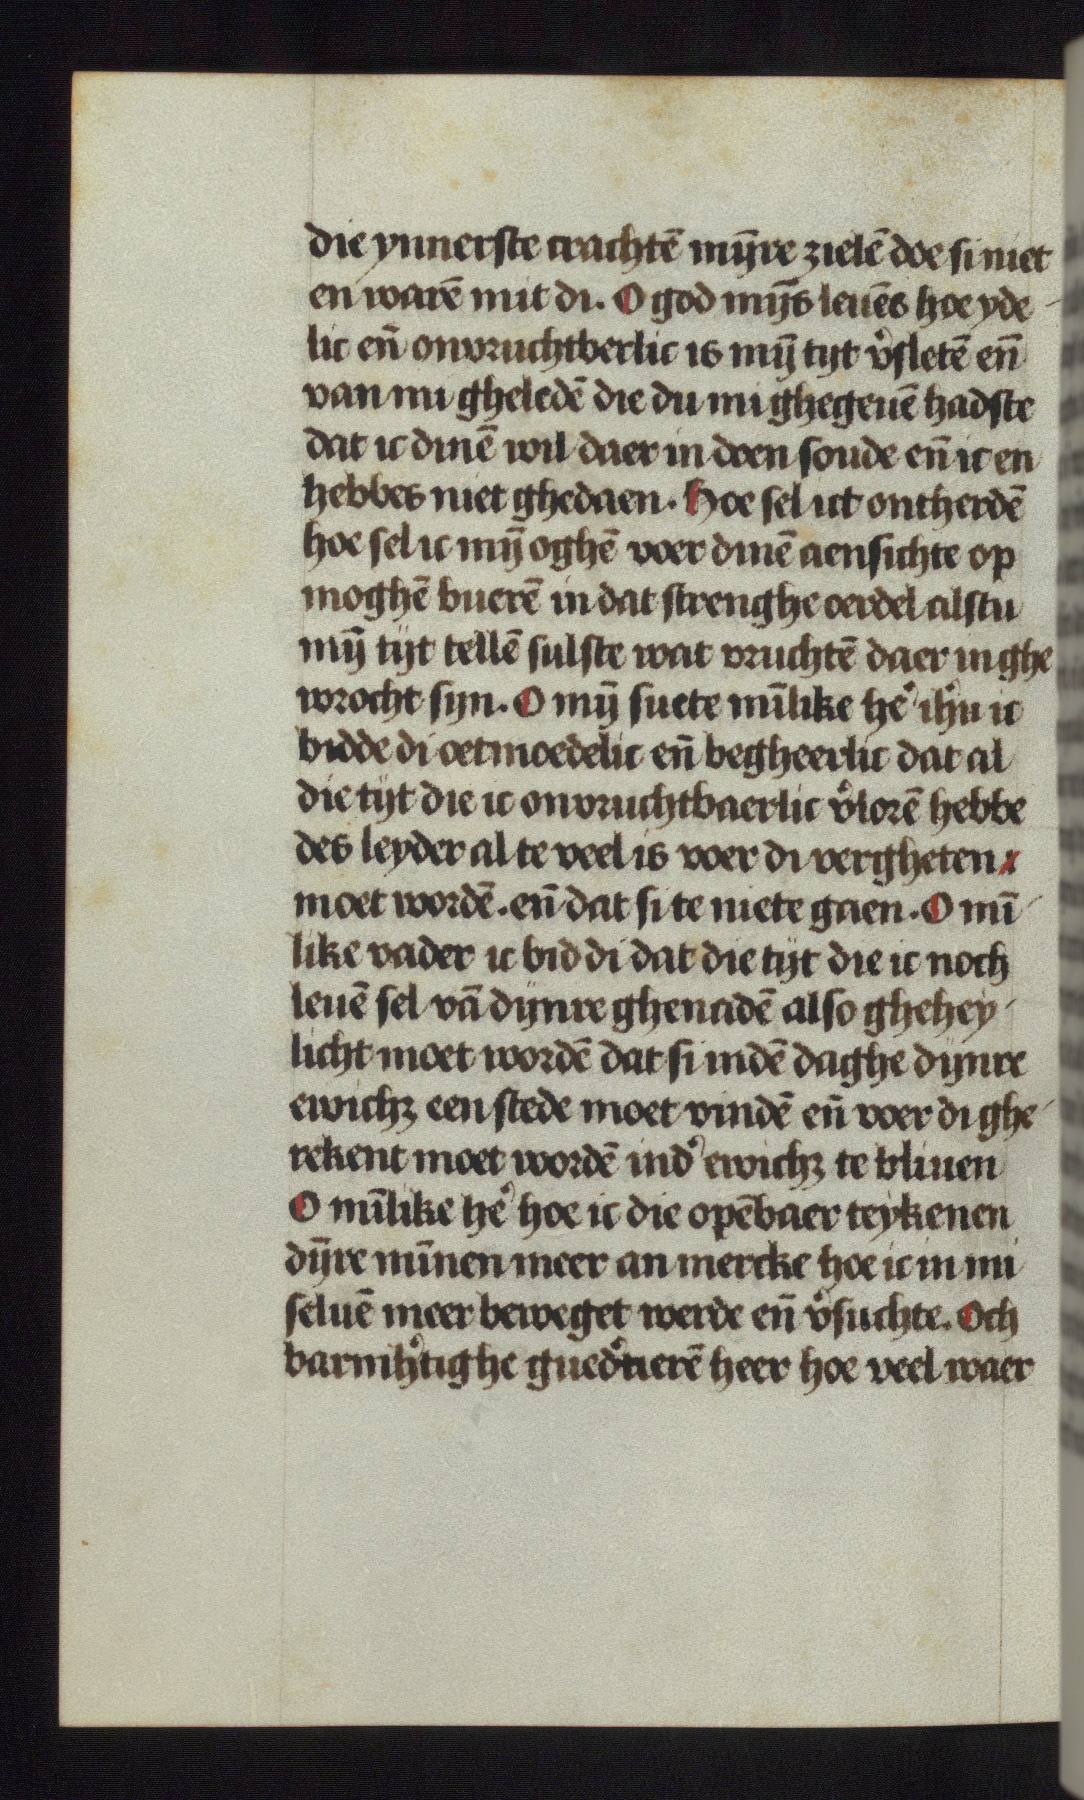 die ynnerste crachtē mȳre zielē doe si niet
en warē mit di. O god mȳs leuēs hoe yde-
lic eñ onvruchtberlic is mȳ tyt v̾sletē eñ
van mi gheledē die du mi ghegeuē hadste
dat ic dinē wil daer in doen soude eñ ic en
hebbes niet ghedaen. Hoe sel ict ontherdē
hoe sel ic mȳ oghē voer dinē aensichte op
moghē buerē in dat strenghe oerdel alstu
mȳ tijt tellē sulste wat vruchtē daer in ghe
wrocht syn. O mȳ suete mīlike he̾ ih̾u ic
bidde di oetmoedelic eñ begheerlic dat al
die tijt die ic onvruchtbaerlic v̾lorē hebbe
des leyder al te veel is voer di vergheten
moet wordē. eñ dat si te niete gaen. O mī-
like vader ic bid di dat die tijt die ic noch
leuē sel vā dijnre ghenadē also ghehey-
licht moet wordē dat si indē daghe dijnre
ewichꝫ een stede moet vindē eñ voer di ghe-
rekent moet wordē ind̾ ewichꝫ te bliuen
O mīlike he̾ hoe ic die opēbaer teykenen
dȳre mīnen meer an mercke hoe ic in mi
seluē meer beweget werde eñ v̾suchte. Och
barmh̾tighe gued̾tierē heer hoe veel waer